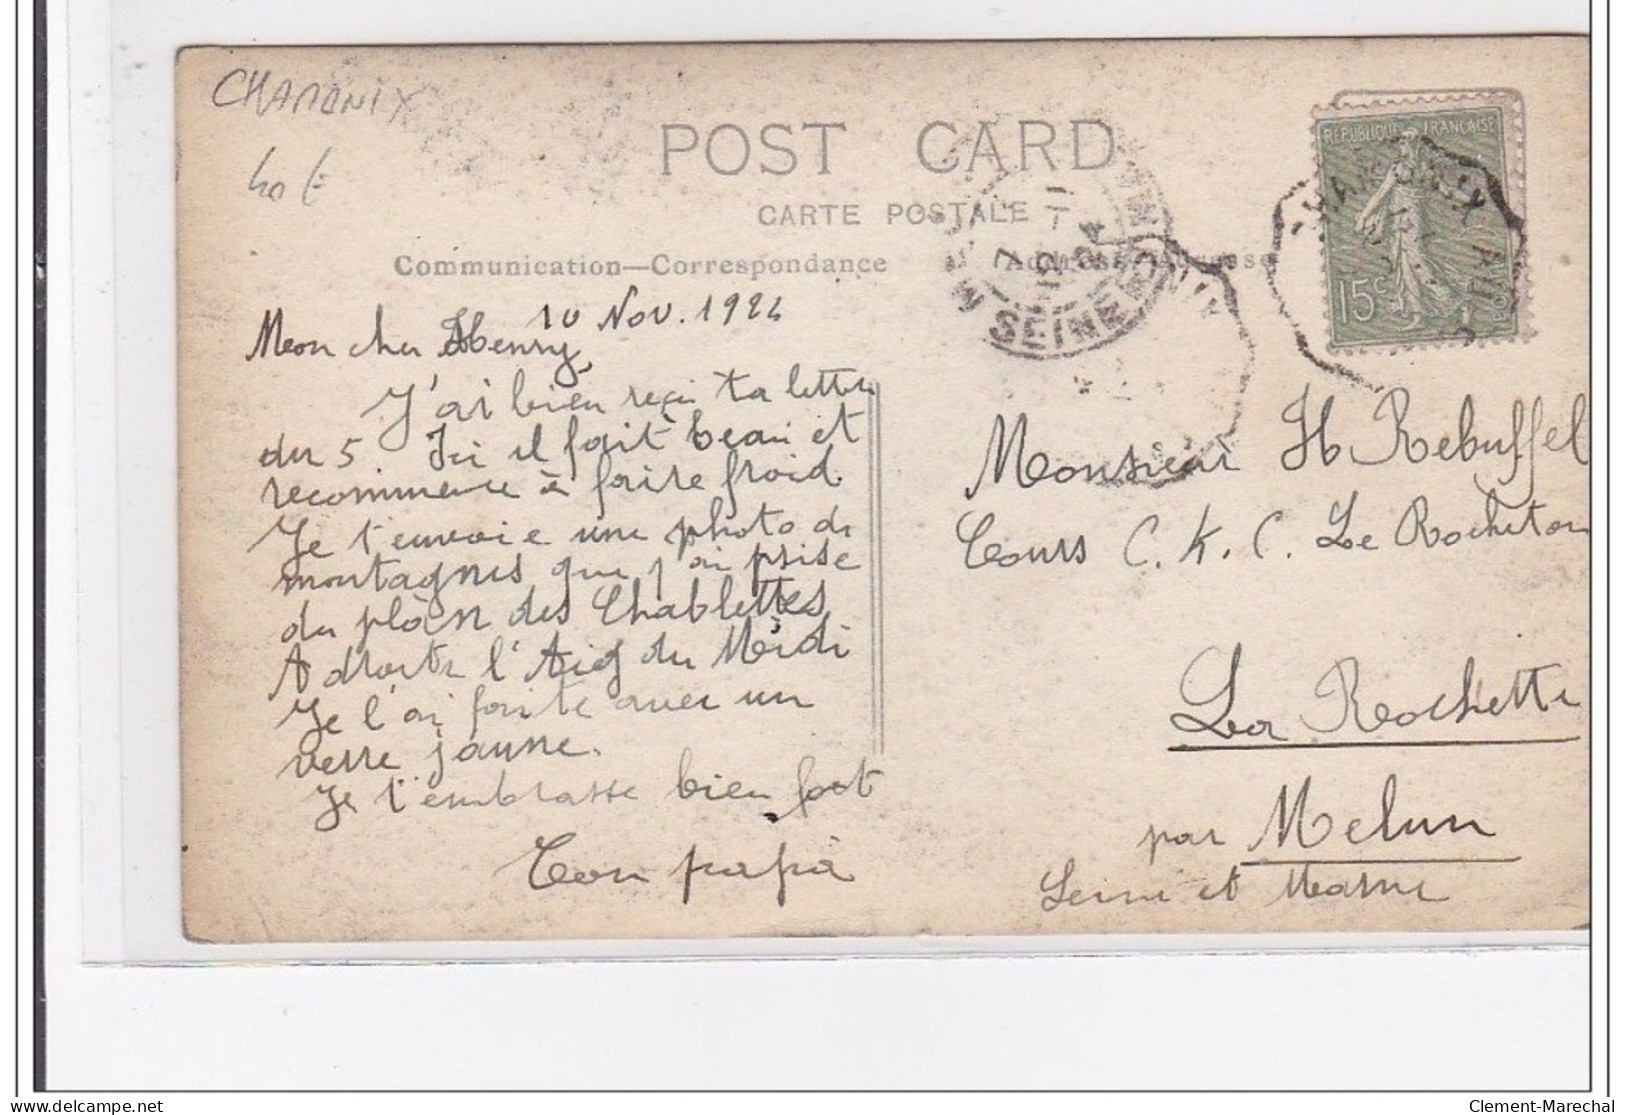 CHAMONIX
40 €
POST CARD
CARTE POSTALE
Communication—Correspondance
10 Nov. 1924
Mon cher Henry,
J'ai bien reçu ta lettre
du 5. Ici il fait beau et
recommence à faire froid.
Je t'envoie une photo de
montagnes que j'ai prise
du plan des Chablettes
A droite l'Aig du Midi
Je l'ai faite avec un
verre jaune.
Je t'embrasse bien fort
Ton papa
RÉPUBLIQUE FRANÇAISE
15c
CHAMONIX
SEINE
7
11
12
24
Monsieur H Rebuffel
Cours C. K. C. Le Rocheton
La Rochette
par Melun
Seine et Marne
Clement-Marechal
www.delcampe.net